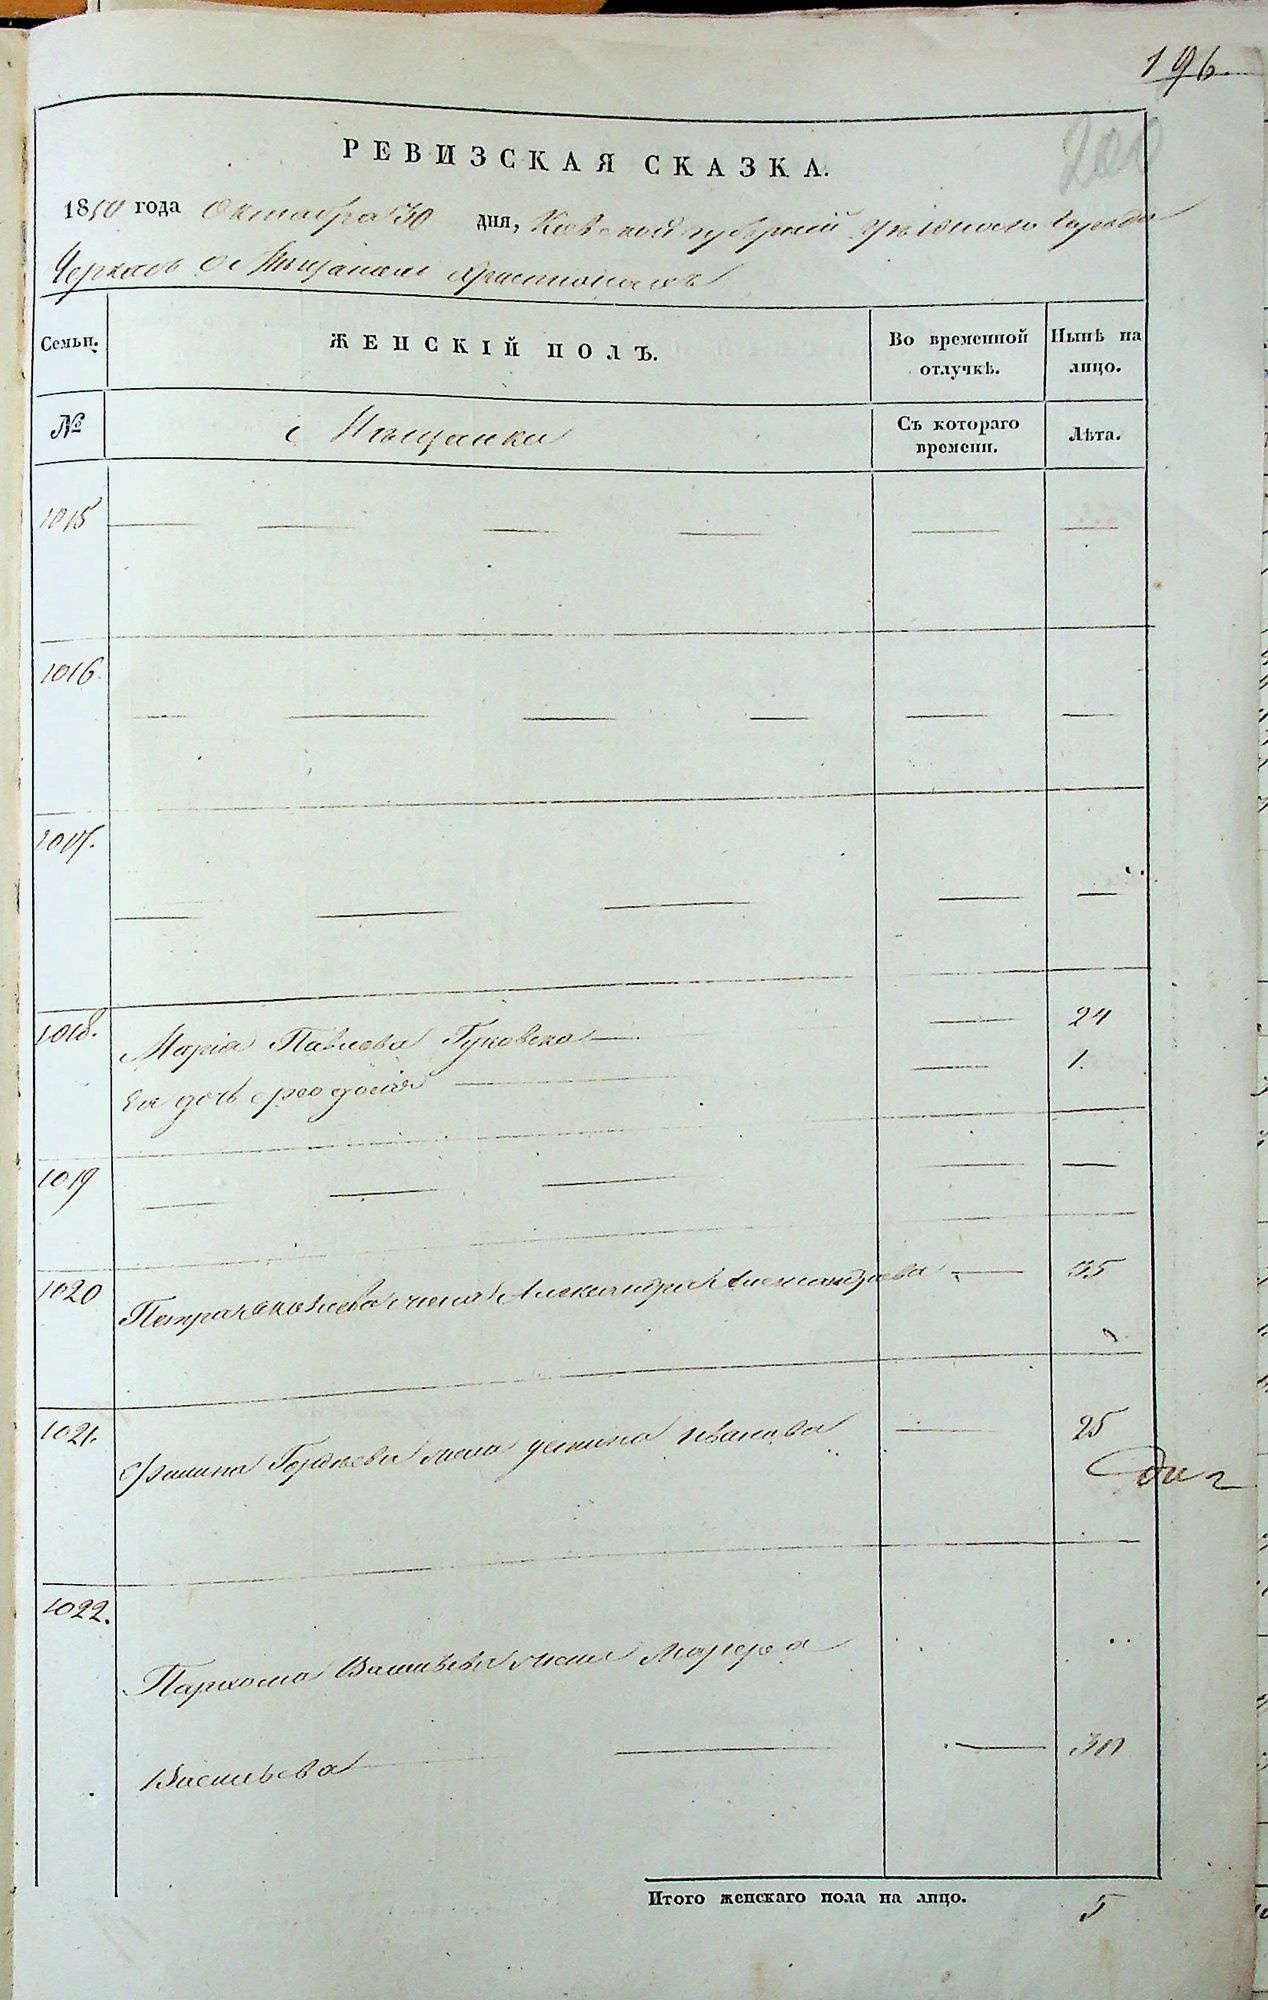 196.
200
РЕВИЗСКАЯ СКАЗКА.
1850 года Октября 30 дня, Кіевской губерніи уѣзднаго города
Черкасъ о Мѣщанахъ христіанахъ
Семьи. ЖЕНСКІЙ ПОЛЪ. Во временной отлучкѣ. Нынѣ на лицо.
№ Мѣщанки Съ котораго времени. Лѣта.
1015 — — — — — —
1016. — — — — — —
1017. — — — — —
1018. Марія Павлова Гуковска — — 24
Ея дочь Феодосія — — 1.
1019 — — — — —
1020 Петра Яковлева жена Александра Александрова — 35
1021. Филипа Гордѣева жена Иванова — 25
1022. Пархома Васильева жена Марфа
Васильева — — 30
Итого женскаго пола на лицо. 5